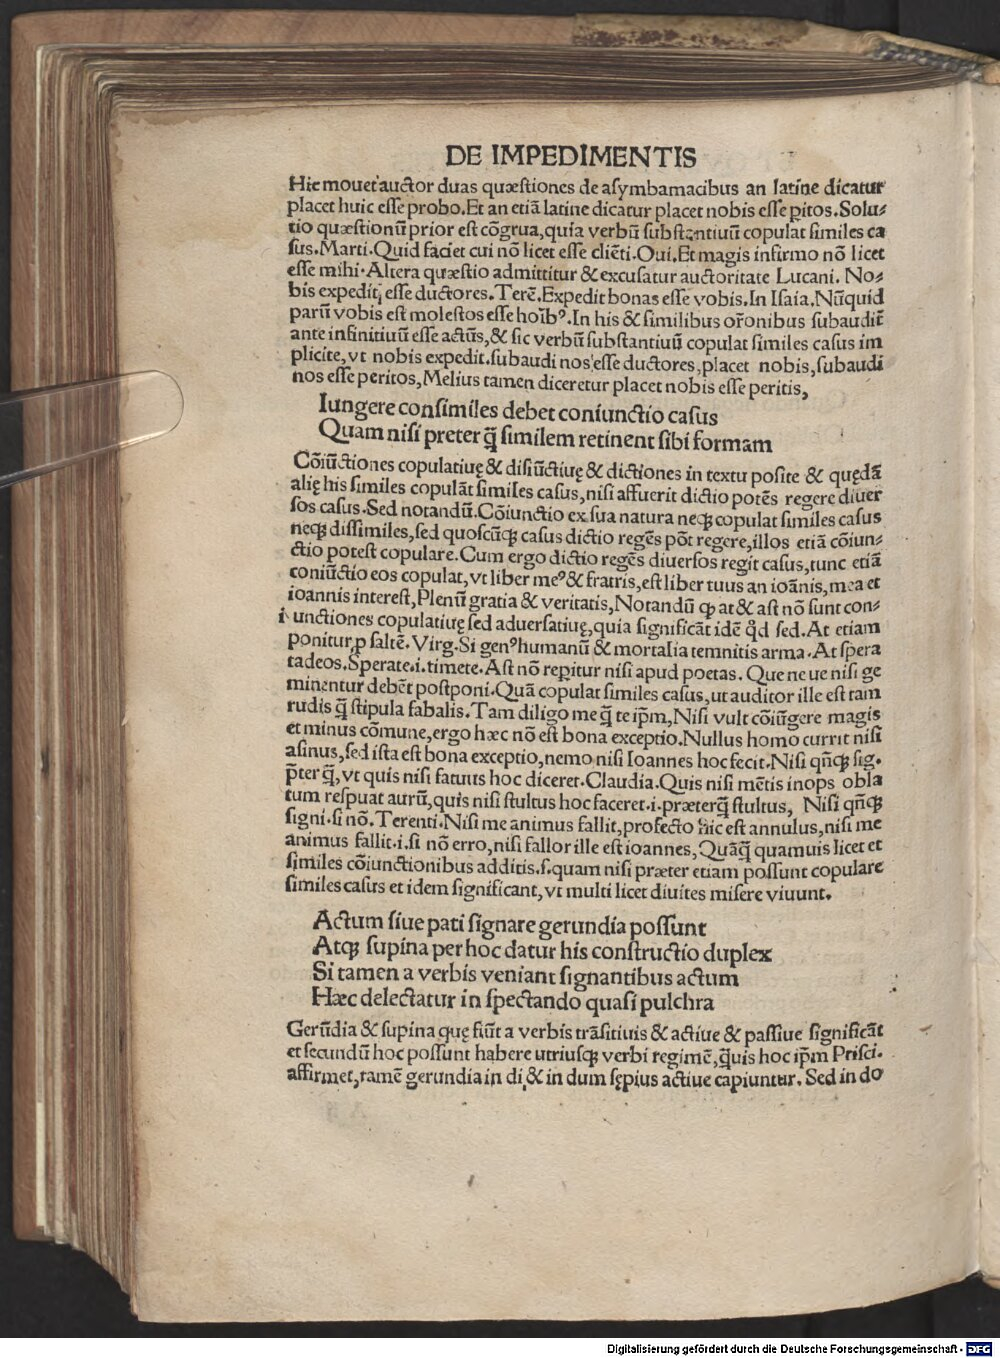 DE IMPEDIMENTIS
Hic mouet auctor duas quæstiones de asymbamacibus an latine dicatur
placet huic esse probo. Et an etiā latine dicatur placet nobis esse pitos. Solu⸗
tio quæstionū prior est cōgrua, quia verbū substantiuū copulat similes ca
sus. Marti. Quid faciet cui nō licet esse cliēti. Oui. Et magis infirmo nō licet
esse mihi. Altera quæstio admittitur & excusatur auctoritate Lucani. No⸗
bis expedit esse ductores. Terē. Expedit bonas esse vobis. In Isaia. Nūquid
parū vobis est molestos esse hoībꝰ. In his & similibus orōnibus subaudit̄
ante infinitiuū esse actūs, & sic verbū substantiuū copulat similes casus im
plicite, vt nobis expedit. subaudi nos esse ductores, placet nobis, subaudi
nos esse peritos, Melius tamen diceretur placet nobis esse peritis,
Iungere consimiles debet coniunctio casus
Quam nisi preter q̄ similem retinent sibi formam
Cōiūctiones copulatiuę & disiūctiuę & dictiones in textu posite & quędā
alię his similes copulāt similes casus, nisi affuerit dictio potēs regere diuer
sos casus. Sed notandū. Cōiunctio ex sua natura neqꝫ copulat similes casus
neqꝫ dissimiles, sed quoscūqꝫ casus dictio regēs pōt regere, illos etiā cōiun⸗
ctio potest copulare. Cum ergo dictio regēs diuersos regit casus, tunc etiā
coniūctio eos copulat, vt liber meꝰ & fratris, est liber tuus an ioānis, mea et
ioannis interest, Plenū gratia & veritatis, Notandū ꝙ at & ast nō sunt con⸗
iunctiones copulatiuę sed aduersatiuę, quia significāt idē qd̄ sed. At etiam
ponitur, ꝓ saltē. Virg. Si genꝰ humanū & mortalia temnitis arma. At spera
tadeos. Sperate .i. timete. Ast nō repitur nisi apud poetas. Que ne ue nisi ge
minentur debēt postponi. Quā copulat similes casus, ut auditor ille est tam
rudis q̄ stipula fabalis. Tam diligo me q̄ te ip̄m, Nisi vult cōiūgere magis
et minus cōmune, ergo hæc nō est bona exceptio. Nullus homo currit nisi
asinus, sed ista est bona exceptio, nemo nisi Ioannes hoc fecit. Nisi qn̄qꝫ sig.
p̄ter q̄, vt quis nisi fatuus hoc diceret. Claudia. Quis nisi mētis inops obla
tum respuat aurū, quis nisi stultus hoc faceret .i. præterq̄ stultus, Nisi qn̄qꝫ
signi. si nō. Terenti. Nisi me animus fallit, profecto hic est annulus, nisi me
animus fallit .i. si nō erro, nisi fallor ille est ioannes, Quāq̄ quamuis licet et
similes cōiunctionibus additis .s. quam nisi præter etiam possunt copulare
similes casus et idem significant, vt multi licet diuites misere viuunt.
Actum siue pati signare gerundia possunt
Atqꝫ supina per hoc datur his constructio duplex
Si tamen a verbis veniant signantibus actum
Hæc delectatur in spectando quasi pulchra
Gerūdia & supina quę fiūt a verbis trāsitiuis & actiue & passiue significāt
et secundū hoc possunt habere utriusqꝫ verbi regimē, q̄uis hoc ip̄m Prisci.
affirmet, tamē gerundia in di, & in dum sępius actiue capiuntur. Sed in do
Digitalisierung gefördert durch die Deutsche Forschungsgemeinschaft - DFG